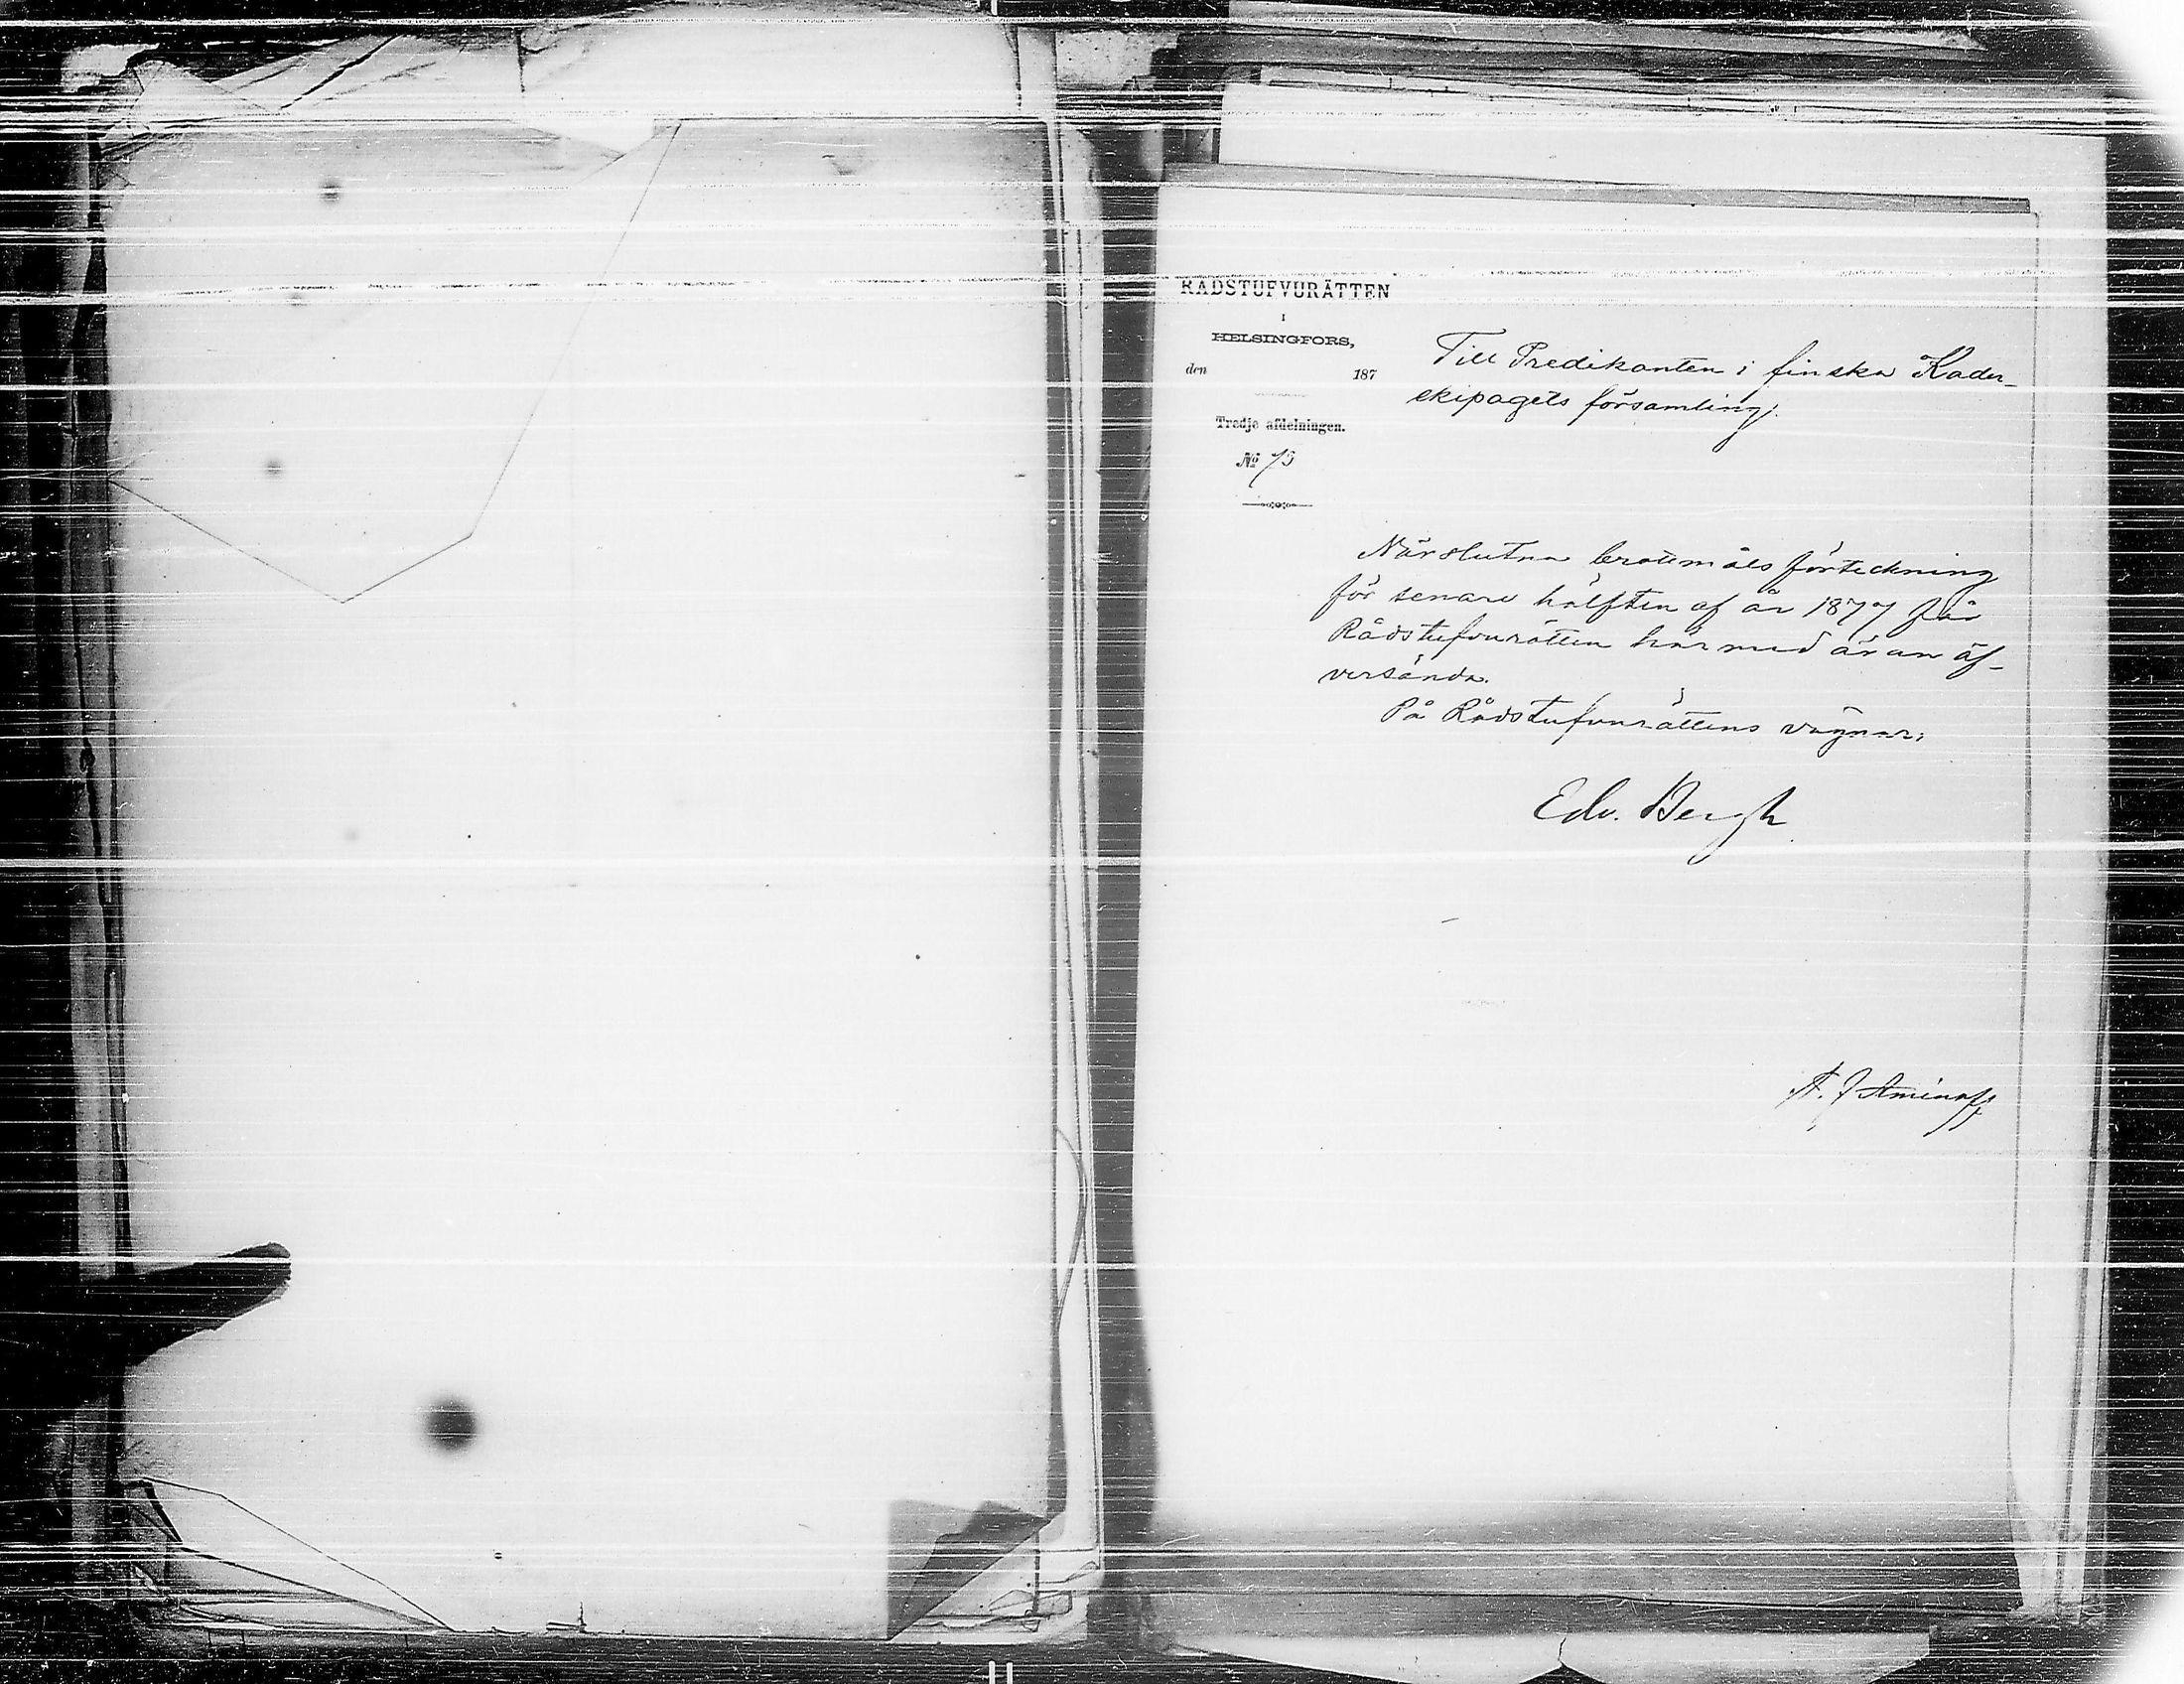 RÅDSTUFVURÄTTEN
I
HELSINGFORS,
den 187
Tredje afdelningen.
№ 75
Till Predikanten i finska Kader-
ekipagets församling.
Närslutna brottmåls förteckning
för senare hälften af år 1877 får
Rådstufvurätten härmed äran öf-
versända.
På Rådstufvurättens vägnar:
Edv. Bergh
A. J Aminoff